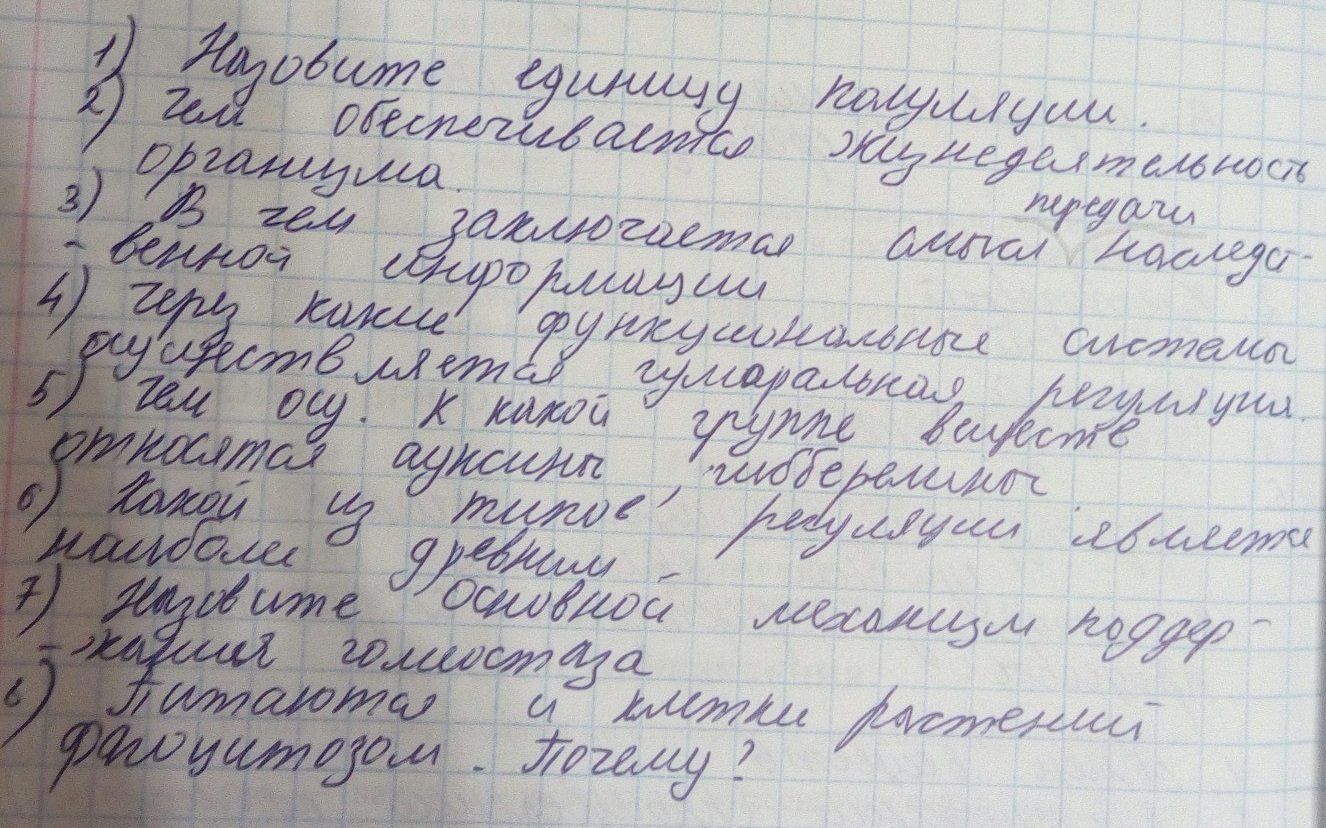 1) Назовите единицу популяции.
2) Чем обеспечивается жизнедеятельность
организма.
3) В чем заключается смысл передачи наследст-
- венной информации
4) Через какие функциональные системы
осуществляется гуморальная регуляция.
5) Чем осу. К какой группе веществ
относятся ауксины, гиббереллины
6) Какой из типов регуляции является
наиболее древним
7) Назовите основной механизм поддер-
- жания гомеостаза
8) Питаются и клетки растений
фагоцитозом. Почему?